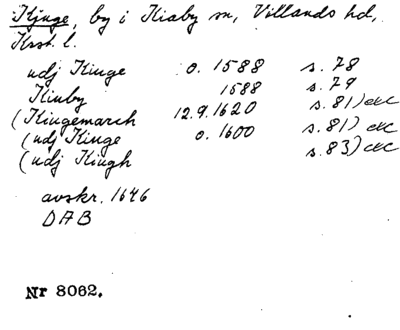 Kjuge, by i Kiaby sn, Villands hd,
Krst. l.
udj Kiuge o. 1588 s. 78
Kiuby 1588 s. 79
(Kiugemarch 12.9.1620 s. 81) etc
(udj Kiuge o. 1600 s. 81) etc
(udj Kiugh s. 83) etc
avskr. 1646
DAB
Nr 8062.